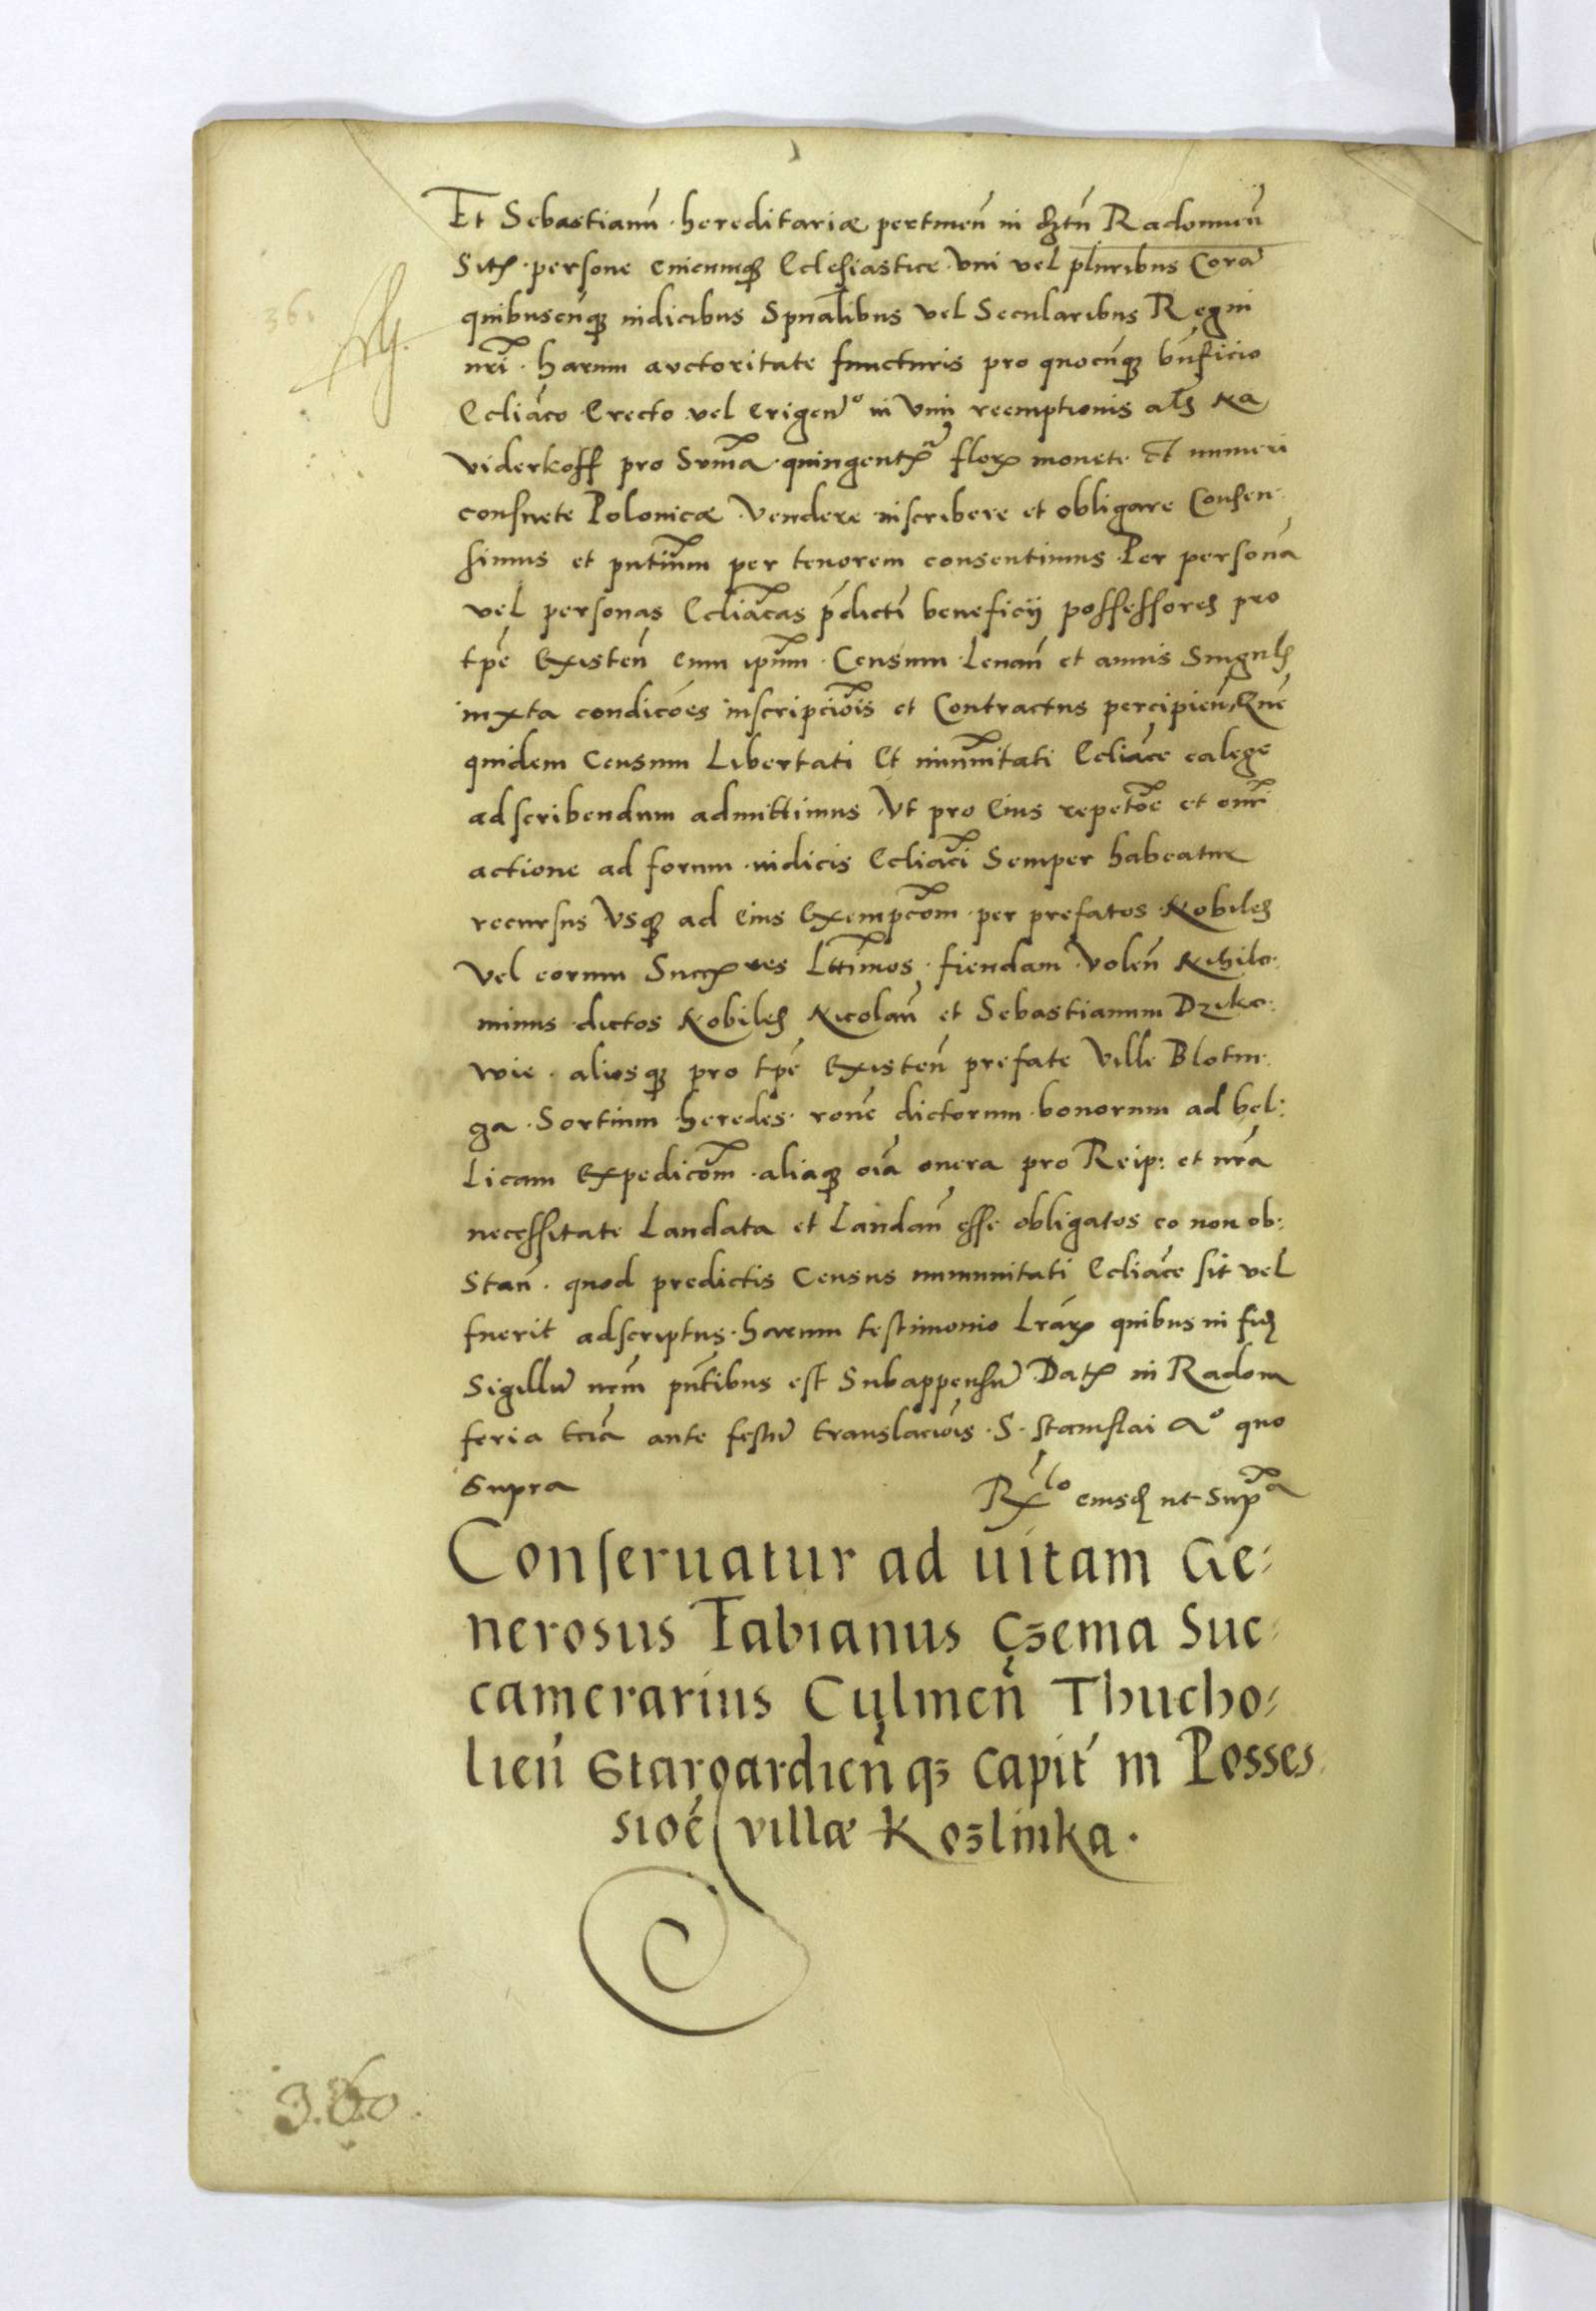 Et Sebastianū hereditariæ pertineñ in Radomieñ
persone cuicunq̃ Ecclesiastice vni vel pluribus Corā
quibuscūq̃ iudicibus Spūalibus vel Secularibus Regni
nrī harum auctoritate functuris pro quocūq̃ bnficio
Ecclīaco Erecto vel erigend̄o in vim reemptionis als Na
viderkoff pro Summa quingentꝝ florꝝ monete et numeri
consuete Polonicæ Vendere inscribere et obligare Consen-
simus et pntium per tenorem consentimus Per personā
vel personas Ecclīacas p̄dicti beneficij possessores pro
tpē Existeñ eum ipsum Censum Leuañ et annis Singulis
iuxta condicōes inscripciōis et Contractus percipieñ Quē
quidem Censum Libertati Et immunitati Ecclīace ea lege
adscribendum admittimus Vt pro Eius repetōe et omī
actione ad forum iudicis Ecclīaci Semper habeatur
recursus Vsq̃ ad Eius Exempcōm per prefatos Nobiles
Vel eorum Succꝝres Lttīmos fiendam Voleñ Nihilo:
minus dictos Nobiles Nicolaū et Sebastianum Dziko:
wie aliosq̃ pro tpē Existeñ prefate Ville Blotni-
ga Sortium heredes ronē dictorum bonorum ad bel:
Licam Expedicōm aliaq̃ oīa onera pro Reip: et nrā
necessitate Laudata et Laudañ esse obligatos eo non ob:
Stañ quod predictis Census immunitati Ecclīace sit vel
fuerit adscriptus harum testimonio Lrāꝝ quibus in fidē
Sigillū nrm pntibus est Subappensū Datꝝ in Radom
feria tciā ante festū translaciōis S. Stanislai Aº quo
Supra
Rꝝlo eiusdē ut Supra
Conseruatur ad uitam Ge:
nerosus Fabianus Czema Suc:
camerarius Cylmeñ Thucho:
lieñ Stargardieñq̃ Capit̄ in Posses
sioē villæ Kozlinka.
3.60.